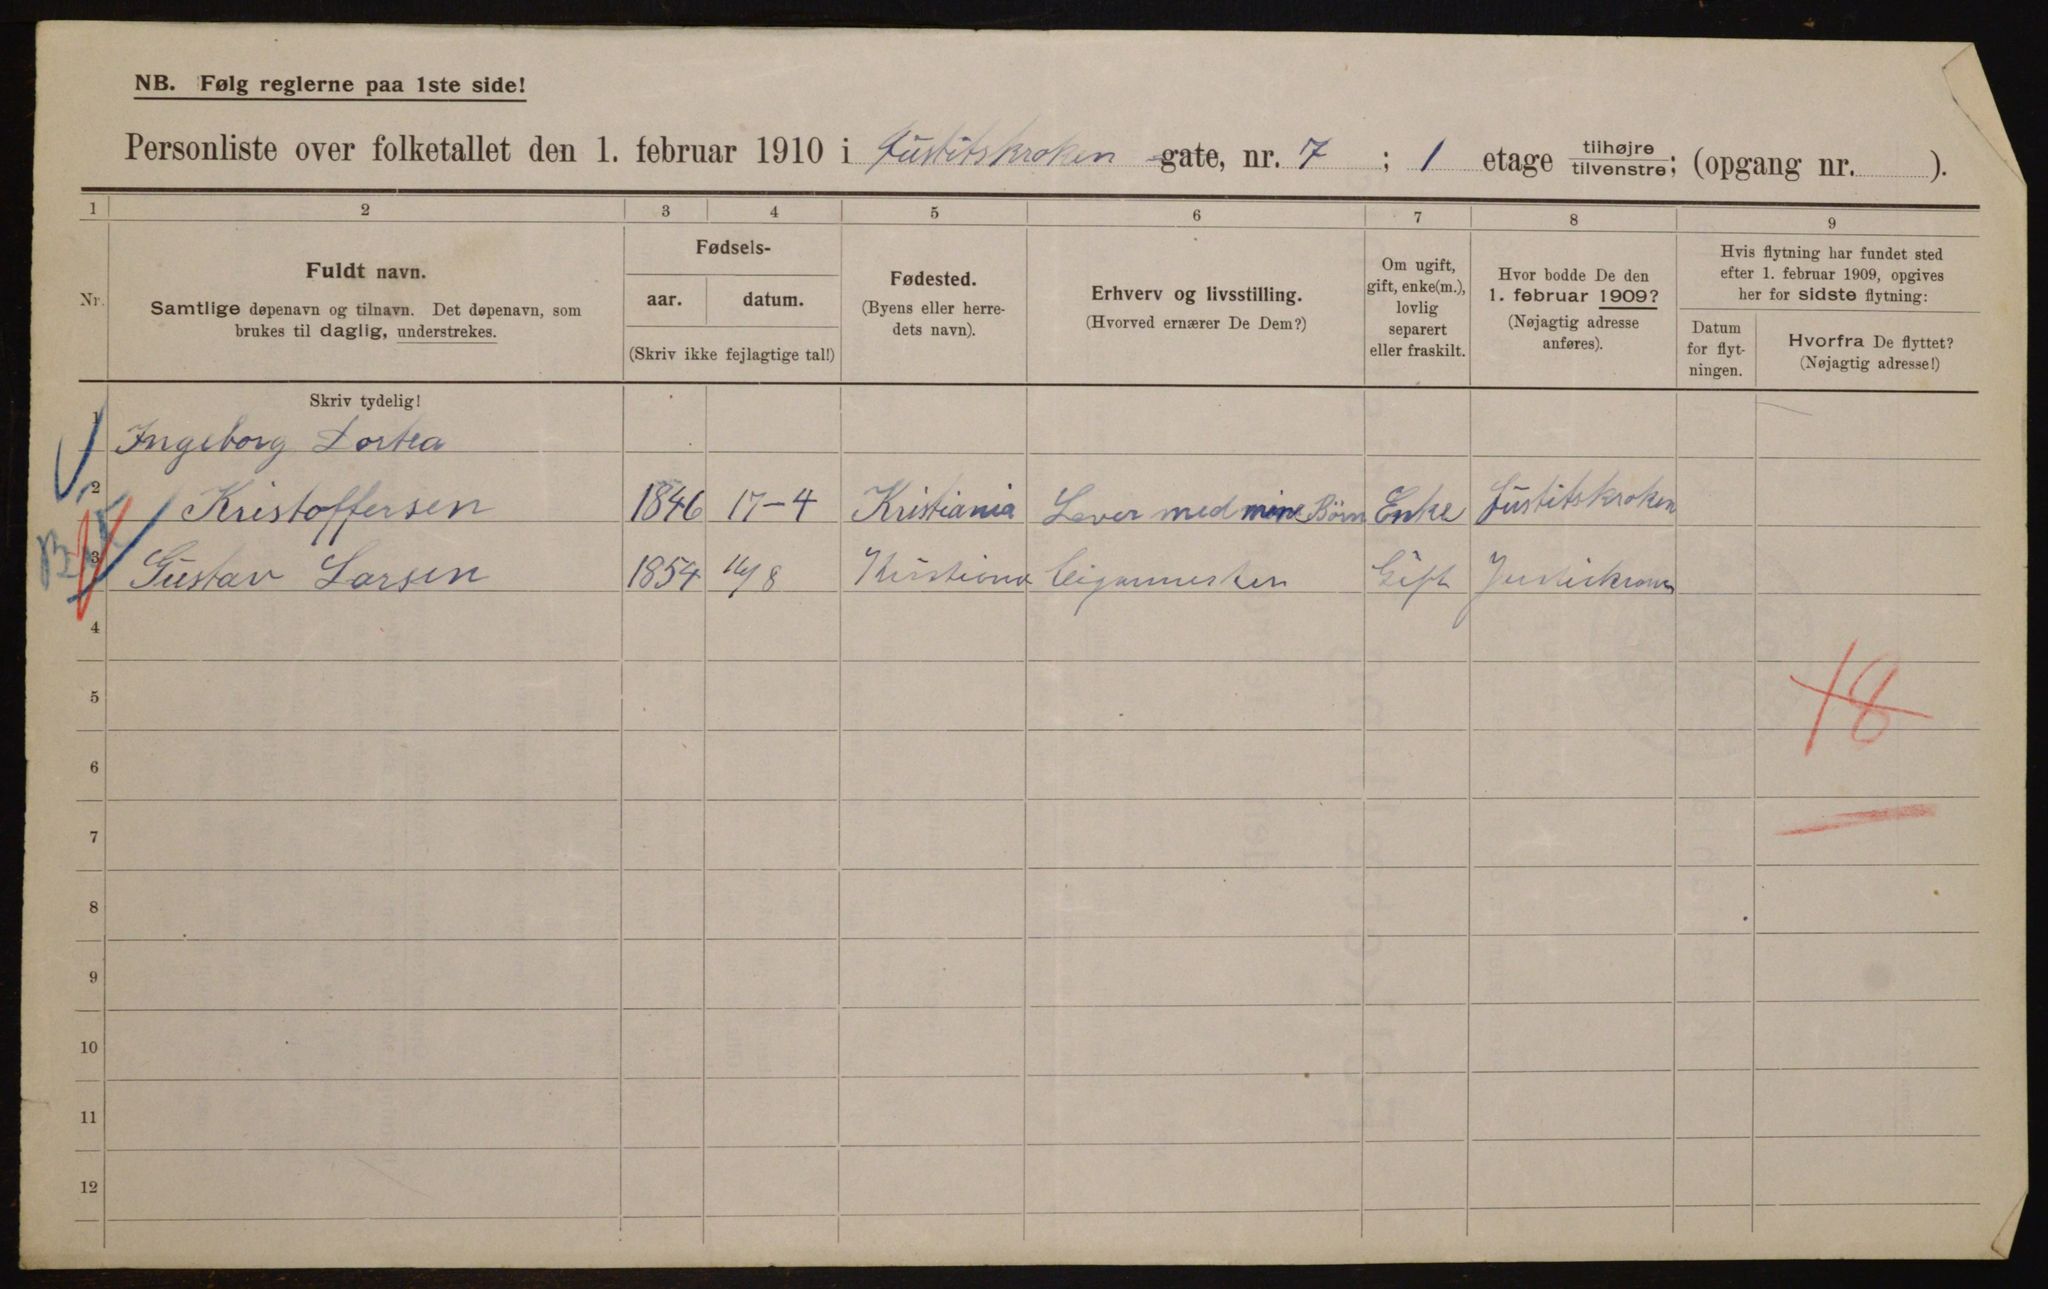 NB. Følg reglerne paa 1ste side!
Personliste over folketallet den 1. februar 1910 i Justitskroken gate, nr. 7 ; 1 etage tilhøjre/tilvenstre; (opgang nr. ).
1 2 3 4 5 6 7 8 9
Nr.
Fuldt navn.
Samtlige døpenavn og tilnavn. Det døpenavn, som
brukes til daglig, understrekes.
Fødsels-
aar. datum.
(Skriv ikke fejlagtige tal!)
Fødested.
(Byens eller herre-
dets navn).
Erhverv og livsstilling.
(Hvorved ernærer De Dem?)
Om ugift,
gift, enke(m.),
lovlig
separert
eller fraskilt.
Hvor bodde De den
1. februar 1909?
(Nøjagtig adresse
anføres).
Hvis flytning har fundet sted
efter 1. februar 1909, opgives
her for sidste flytning:
Datum
for flyt-
ningen.
Hvorfra De flyttet?
(Nøjagtig adresse!)
Skriv tydelig!
1 Ingeborg Dortea
2 Kristoffersen 1846 17-4 Kristiania Lever med mine Børn Enke Justitskroken
3 Gustav Larsen 1854 /8 Kristiania Gift
4
18
5
6
7
8
9
10
11
12